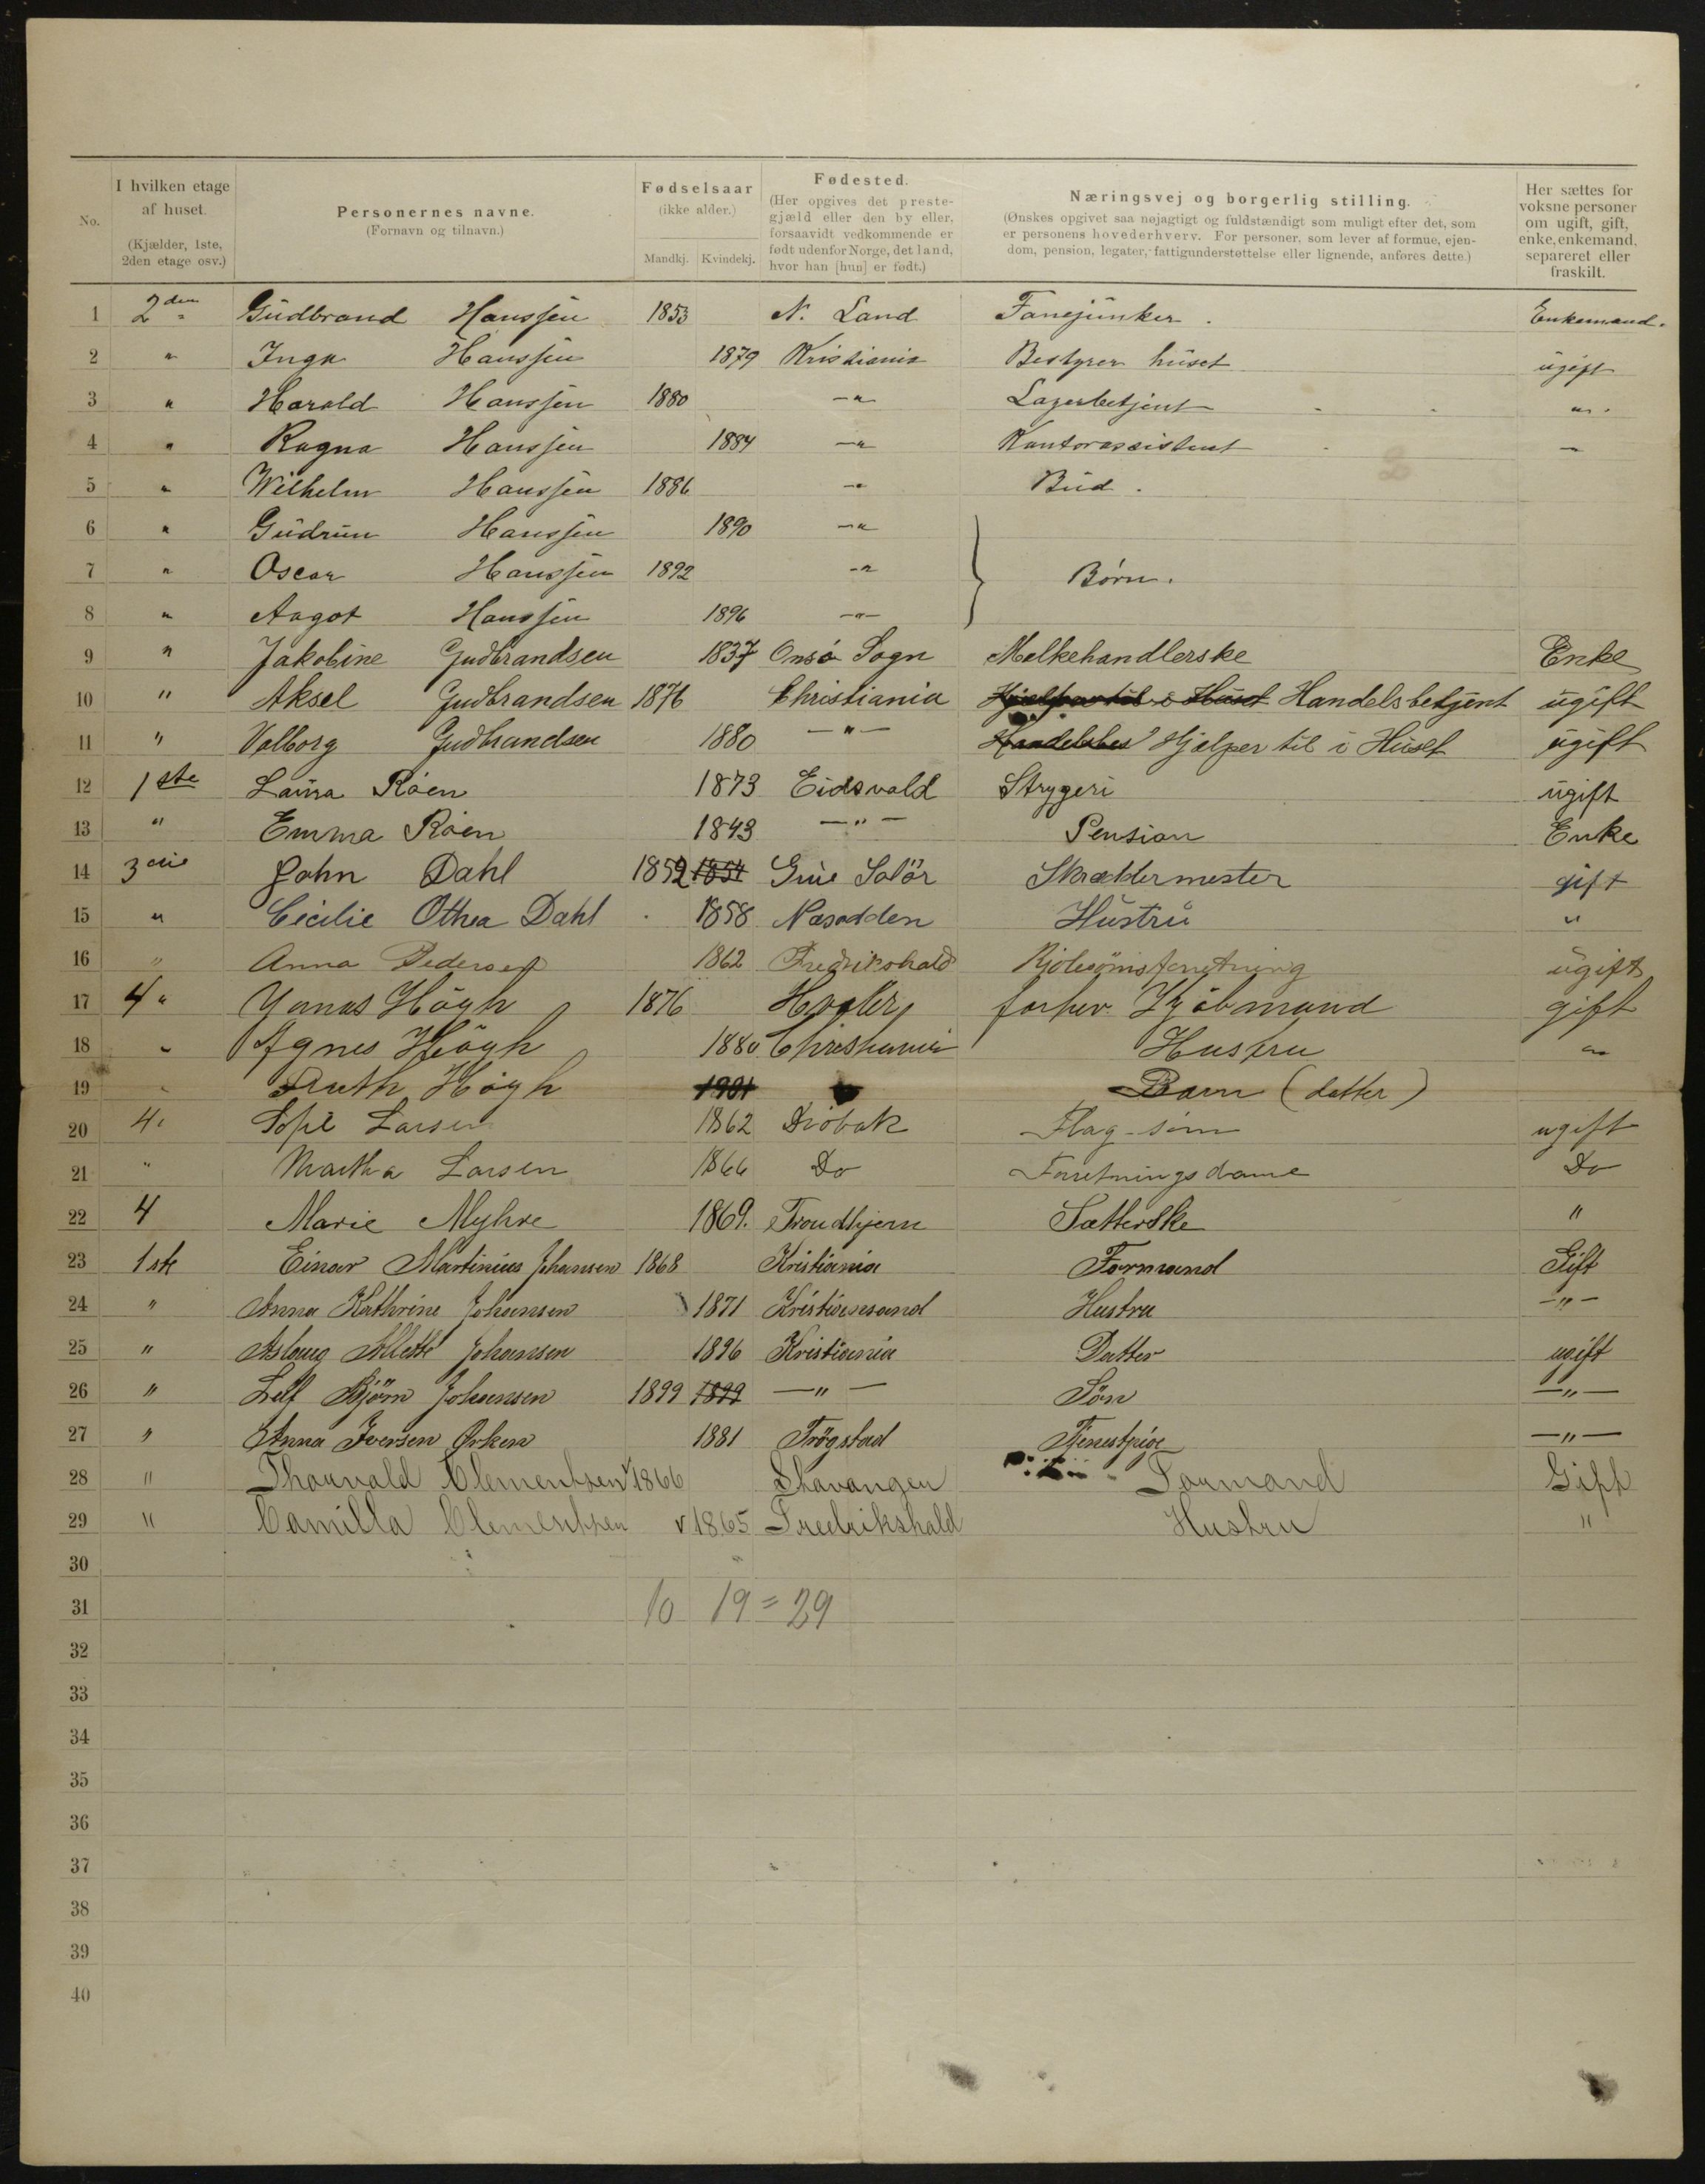 No.	I hvilken etage af huset. (Kjælder, 1ste, 2den etage osv.)	Personernes navne. (Fornavn og tilnavn.)	Fødselsaar (ikke alder.) Mandkj. Kvindekj.	Fødested. (Her opgives det prestegjæld eller den by eller, forsaavidt vedkommende er født udenfor Norge, det land, hvor han [hun] er født.)	Næringsvej og borgerlig stilling. (Ønskes opgivet saa nøjagtigt og fuldstændigt som muligt efter det, som er personens hovederhverv. For personer, som lever af formue, ejendom, pension, legater, fattigunderstøttelse eller lignende, anføres dette.)	Her sættes for voksne personer om ugift, gift, enke, enkemand, separeret eller fraskilt.
1 2den Gudbrand Hanssen 1853 N. Land Fanejunker. Enkemand.
2 " Inga Hanssen 1879 Kristiania Bestyrer huset ugift
3 " Harald Hanssen 1880 -"- Lagerbetjent "
4 " Ragna Hanssen 1884 -"- Kontorassistent -
5 " Wilhelm Hanssen 1886 -"- Bud.
6 " Gudrun Hanssen 1890 -"-
7 " Oscar Hanssen 1892 -"- Børn.
8 " Aagot Hanssen 1896 -"-
9 " Jakobine Gudbrandsen 1837 Onsø Sogn Melkehandlerske Enke
10 " Aksel Gudbrandsen 1876 Christiania Hjælper til i Huset Handelsbetjent ugift
11 " Valborg Gudbrandsen 1880 -"- Handelsbet Hjælper til i Huset ugift
12 1ste Laura Röen 1873 Eidsvold Strygeri ugift
13 " Emma Röen 1843 -"- Pension Enke
14 3die John Dahl 1852 1854 Grue Solör Skræddermester gift
15 " Cecilie Othea Dahl 1858 Næsodden Hustru "
16 " Anna Pedersen 1862 Fredrikshald Kjolesömsforretning ugift
17 4 " Yonas Högh 1876 Hvaler forhv. Kjöbmand gift
18 " Agnes Högh 1880 Christiania Hustru "
19 " Ruth Högh 1901 Barn (datter)
20 4. Sofie Larsen 1862 Dröbak Flag-söm ugift
21 " Martha Larsen 1866 Do Forretningsdame Do
22 4 Marie Myhre 1869. Trondhjem Sætterske "
23 1ste Einar Martinius Johansen 1868 Kristiania Formand Gift
24 " Anna Kathrine Johansen 1871 Kristiansand Hustru -"-
25 " Aslaug Allette Johansen 1896 Kristiania Datter ugift
26 " Leif Björn Johansen 1899 1899 -"- Sön -"-
27 " Anna Iversen Ørken 1881 Trögstad Tjenestpige -"-
28 " Thorvald Clementsen 1866 Stavanger Formand Gift
29 " Camilla Clementsen 1865 Fredrikshald Hustru "
30
31 10 19 = 29
32
33
34
35
36
37
38
39
40